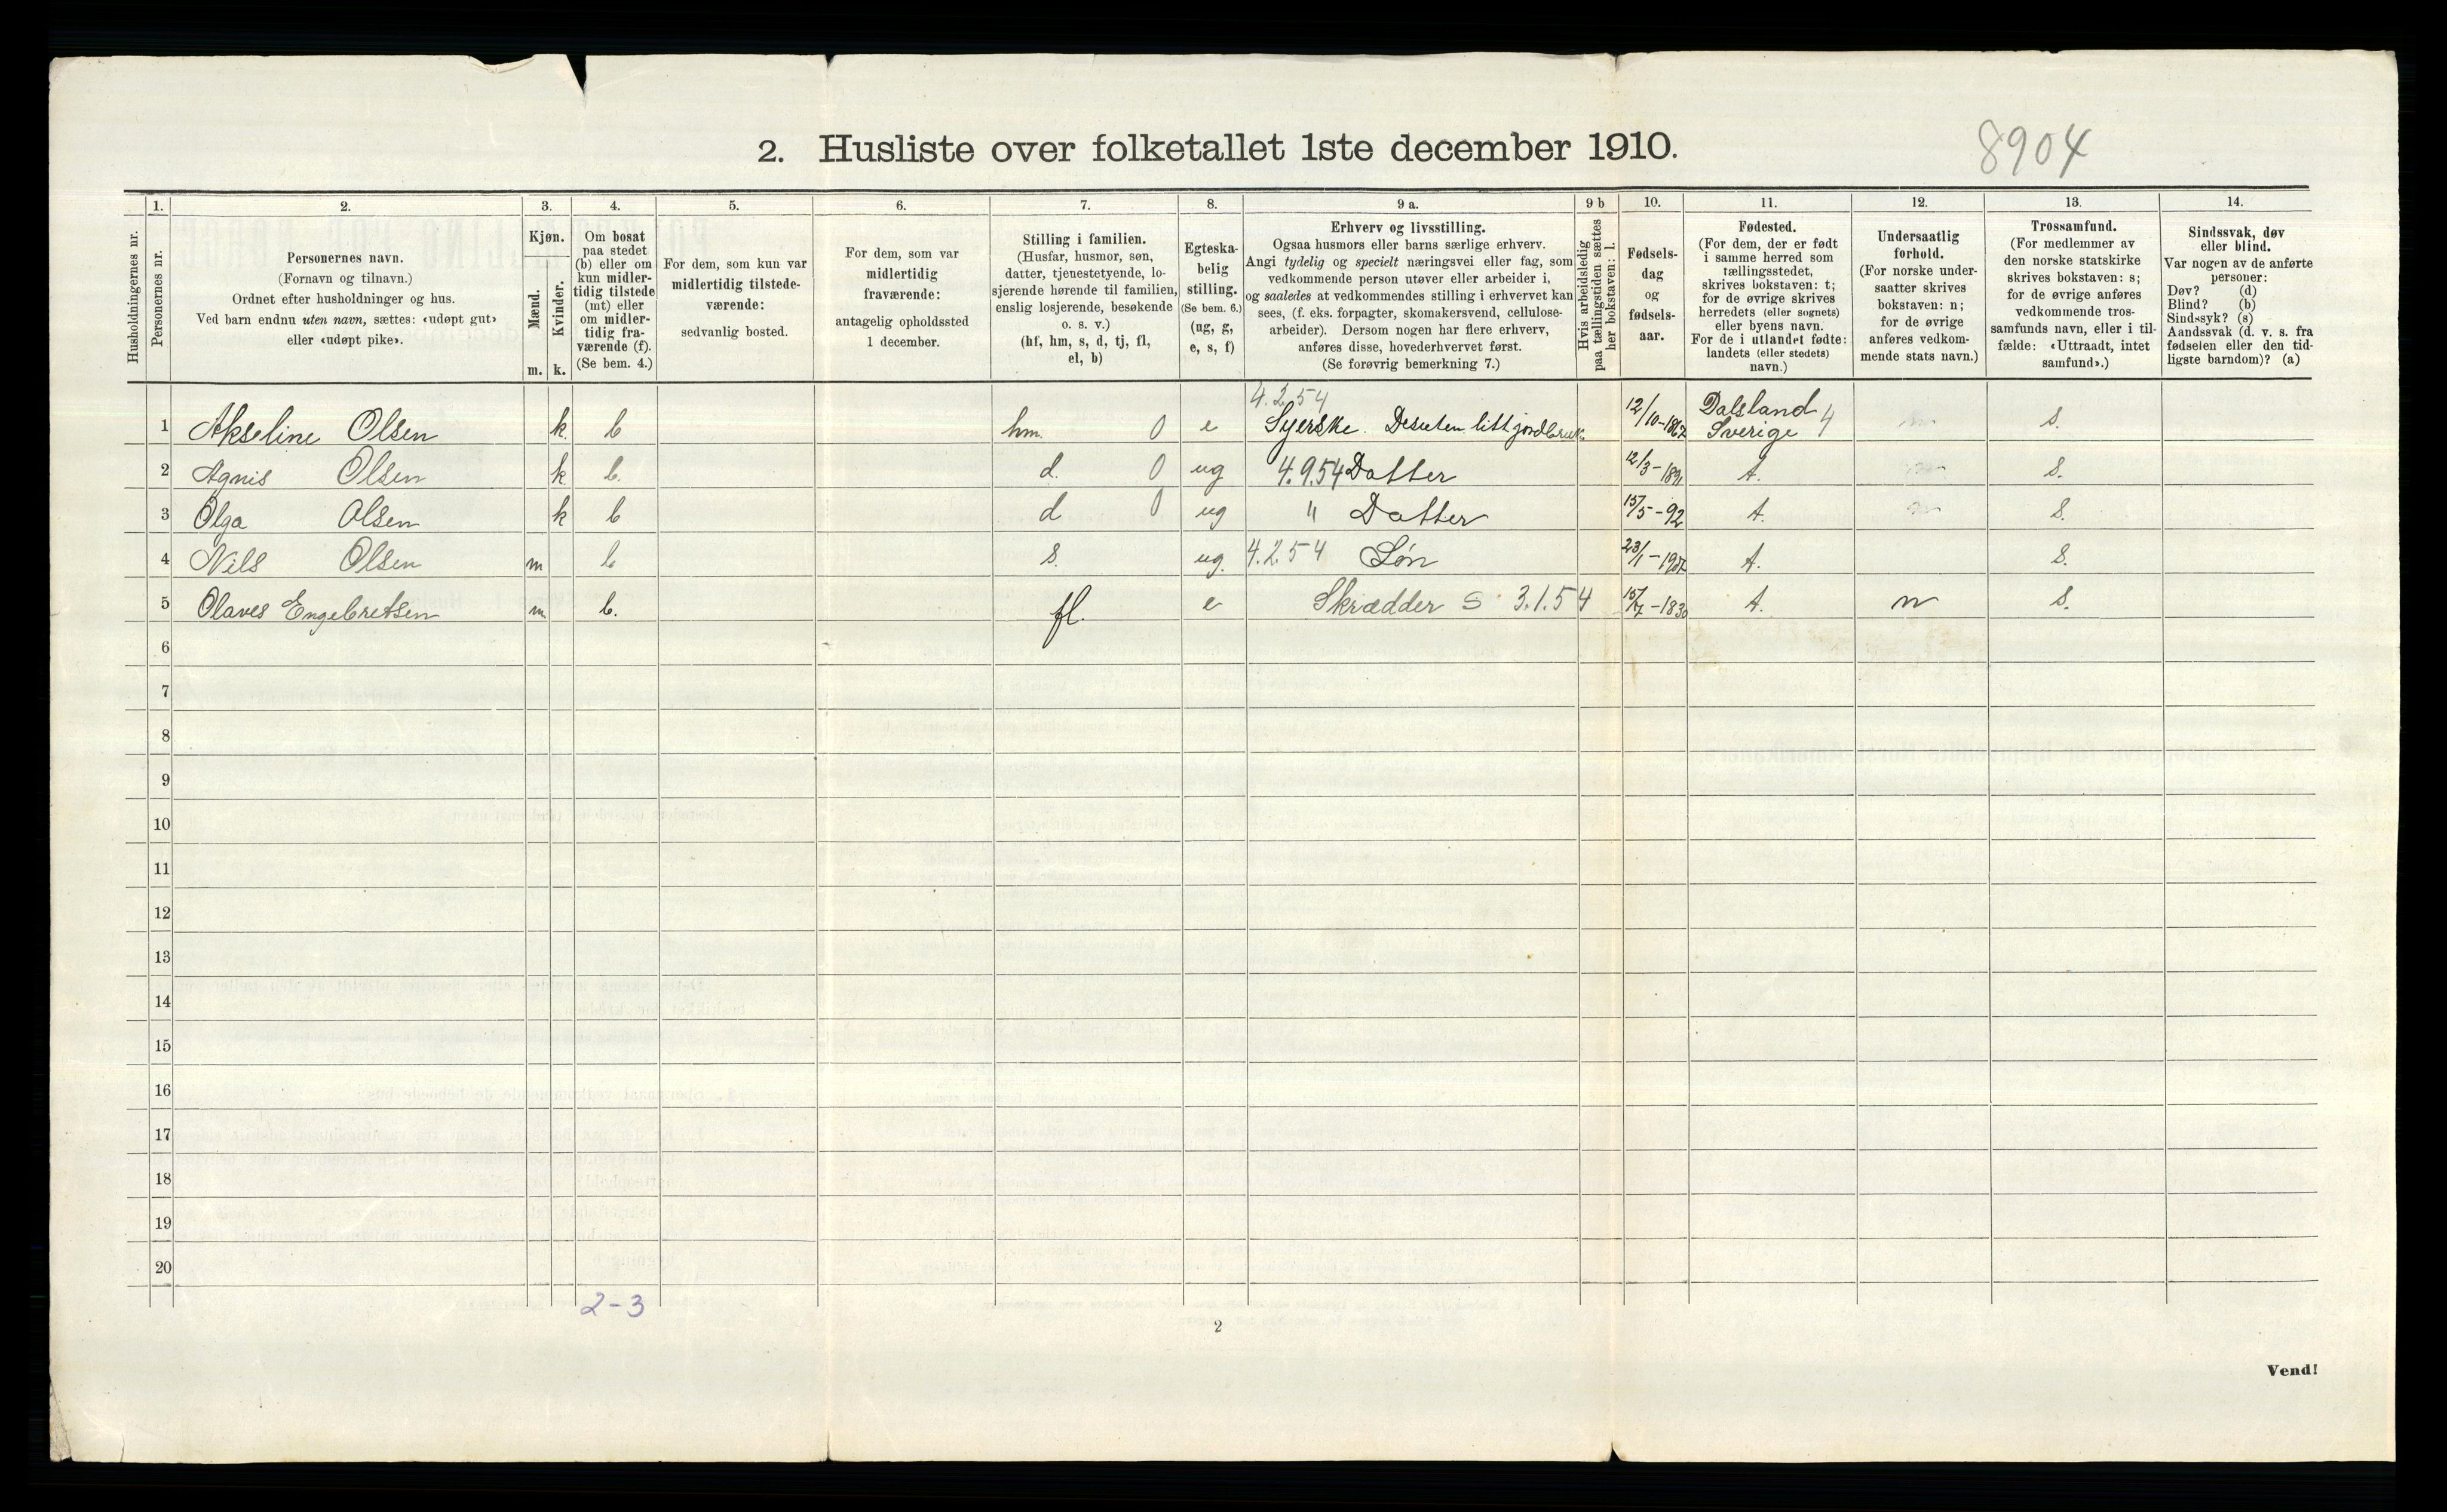 2. Husliste over folketallet 1ste december 1910.
8904
Husholdningernes nr.
1.
Personernes nr.
2.
Personernes navn.
(Fornavn og tilnavn.)
Ordnet efter husholdninger og hus.
Ved barn endnu uten navn, sættes: «udøpt gut»
eller «udøpt pike».
3.
Kjøn.
Mænd.
Kvinder.
m. k.
4.
Om bosat
paa stedet
(b) eller om
kun midler-
tidig tilstede
(mt) eller
om midler-
tidig fra-
værende (f).
(Se bem. 4.)
5.
For dem, som kun var
midlertidig tilstede-
værende:
sedvanlig bosted.
6.
For dem, som var
midlertidig
fraværende:
antagelig opholdssted
1 december.
7.
Stilling i familien.
(Husfar, husmor, søn,
datter, tjenestetyende, lo-
sjerende hørende til familien,
enslig losjerende, besøkende
o. s. v.)
(hf, hm, s, d, tj, fl,
el, b)
8.
Egteska-
belig
stilling.
(Se bem. 6.)
(ug, g,
e, s, f)
9 a.
Erhverv og livsstilling.
Ogsaa husmors eller barns særlige erhverv.
Angi tydelig og specielt næringsvei eller fag, som
vedkommende person utøver eller arbeider i,
og saaledes at vedkommendes stilling i erhvervet kan
sees, (f. eks. forpagter, skomakersvend, cellulose-
arbeider). Dersom nogen har flere erhverv,
anføres disse, hovederhvervet først.
(Se forøvrig bemerkning 7.)
9 b
Hvis arbeidsledig
paa tællingstiden sættes
her bokstaven: l.
10.
Fødsels-
dag
og
fødsels-
aar.
11.
Fødested.
(For dem, der er født
i samme herred som
tællingsstedet,
skrives bokstaven: t;
for de øvrige skrives
herredets (eller sognets)
eller byens navn.
For de i utlandet fødte:
landets (eller stedets)
navn.)
12.
Undersaatlig
forhold.
(For norske under-
saatter skrives
bokstaven: n;
for de øvrige
anføres vedkom-
mende stats navn.)
13.
Trossamfund.
(For medlemmer av
den norske statskirke
skrives bokstaven: s;
for de øvrige anføres
vedkommende tros-
samfunds navn, eller i til-
fælde: «Uttraadt, intet
samfund».)
14.
Sindssvak, døv
eller blind.
Var nogen av de anførte
personer:
Døv? (d)
Blind? (b)
Sindssyk? (s)
Aandssvak (d. v. s. fra
fødselen eller den tid-
ligste barndom)? (a)
4.2.54 Dalsland 4
1 Akseline Olsen k. b hm. 0 e Syerske. Desuten litt jordbruk 12/10-1867 Sverige n s.
2 Agnis Olsen k. b. d. 0 ug 4.9.54 Datter 12/3-1891 t. s.
3 Olga Olsen k b d 0 ug " Datter 15/5-92 t. s.
4 Nils Olsen m b s. ug. 4.2.54 Søn 23/1-1907 t. s.
5 Olaves Engebretsen m b. fl. e Skrædder S 3.1.54 15/7-1830 t. n s.
6
7
8
9
10
11
12
13
14
15
16
17
18
19
20
2-3
2
Vend!